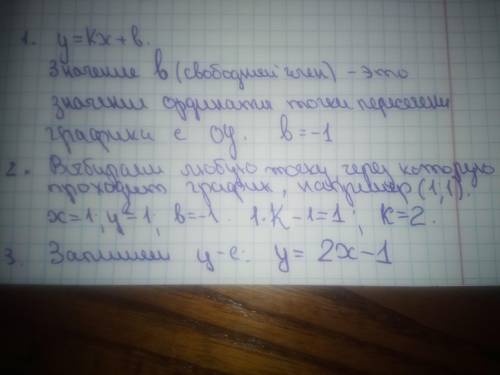 1. y=kx+b.
Значение b (свободный член) - это
значение ординаты точки пересечения
графика с OY. b=-1
2. Выбираем любую точку, через которую
проходит график, например (1;1).
x=1; y=1; b=-1. 1·k-1=1; k=2.
3. Запишем ур-е: y=2x-1